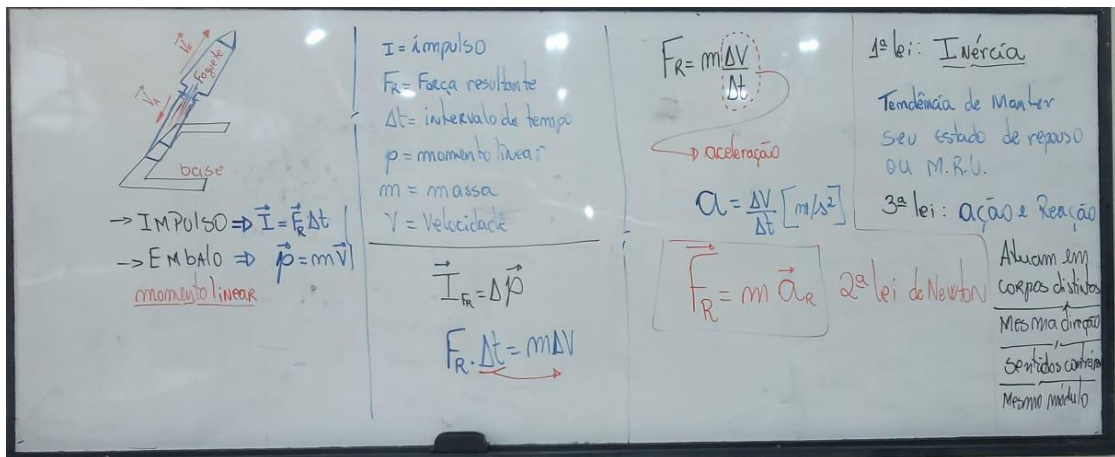 V⃗F
Foguete
V⃗A
base
→ IMPULSO ⇒ I⃗ = F⃗R Δt
→ EMBALO ⇒ p⃗ = mV⃗
momento linear
I = impulso
FR = Força resultante
Δt = intervalo de tempo
p = momento linear
m = massa
V = Velocidade
I⃗FR = Δp⃗
FR . Δt = mΔV
FR = m ΔV/Δt
→ aceleração
a = ΔV/Δt [m/s²]
F⃗R = m a⃗R
2ª lei de Newton
1ª lei: Inércia
Tendência de Manter
seu estado de repouso
ou M.R.U.
3ª lei: ação e Reação
Atuam em
corpos distintos
Mesma direção
Sentidos contrários
Mesmo módulo